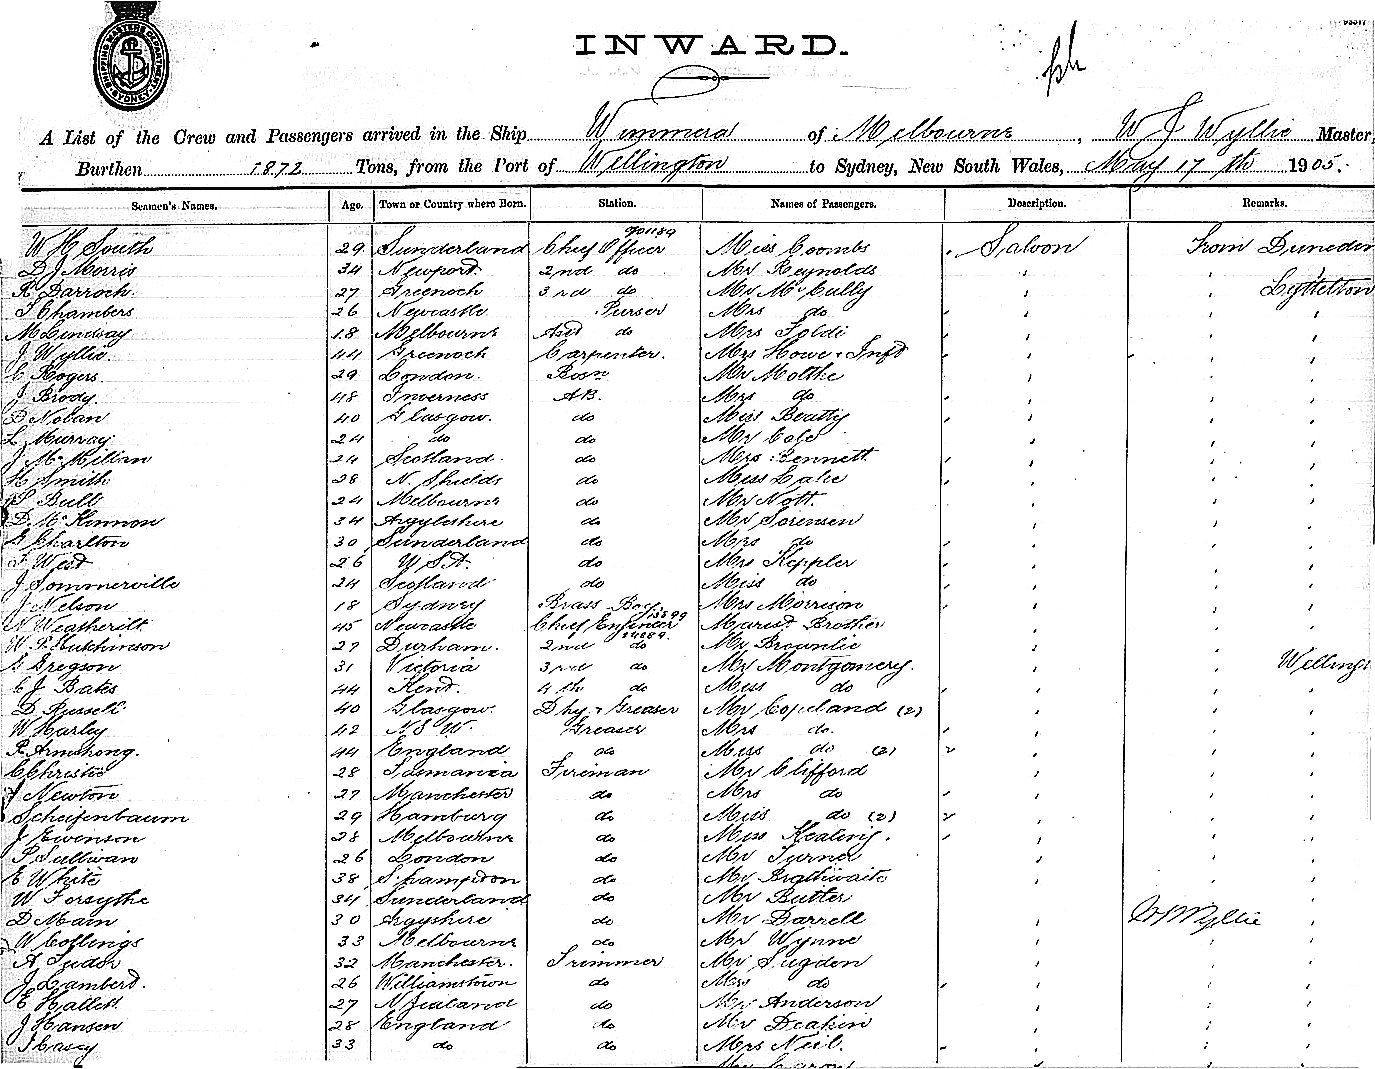 INWARD.
A List of the Crew and Passengers arrived in the Ship Wimmera of Melbourne, W J Wyllie Master,
Burthen 1872 Tons, from the Port of Wellington to Sydney, New South Wales, May 17th 1905.
Seamen's Names. Age. Town or Country where Born. Station. Names of Passengers. Description. Remarks.
W H South 29 Sunderland Chief Officer Miss Coombs Saloon From Dunedin
D J Morris 34 Newport 2nd do Mr Reynolds
R Darroch. 27 Greenoch 3rd do Mr McCully Lyttelton
Chambers 26 Newcastle Purser Mrs do
M Lindsay 18 Melbourne Asst do Mrs Foldi
J Wyllie. 44 Greenoch Carpenter. Mrs Howe & Inft
C Rogers. 29 London. Bosn Mr Molthe
J Brody. 48 Inverness AB. Mrs do
D Nolan 40 Glasgow. do Miss Beatty
L Murray 24 do do Mr Cole
J McMillan 24 Scotland. do Mrs Bennett
H Smith 28 N. Shields do Miss Lake
Bull 24 Melbourne do Mr Nott.
D. McKinnon 34 Argyleshire do Mr Sorensen
G Charlton 30 Sunderland do Mrs do
West 26 U S A. do Mrs Keppler
J Sommerville 24 Scotland do Miss do
J Nelson 18 Sydney Brass Boy. Mrs Morrison
N Weatherilt 45 Newcastle Chief Engineer Marist Brother
W P Hutchinson 27 Durham. 2nd do Mr Brownlie
G Gregson 31 Victoria 3rd do Mr Montgomery. Wellingt
C J Bates 44 Kent. 4th do Miss do
D Russell 40 Glasgow. Dky & Greaser Mr Copeland (2)
W Harley 42 N.S.W. Greaser Mrs do.
R Armstrong. 44 England do Miss do (2)
C Christie 28 Tasmania Fireman Mr Clifford
J Newton 27 Manchester do Mrs do
Scheifenbaum 29 Hamburg do Miss do (2)
J Evenson 28 Melbourne do Miss Keating.
Sullivan 26 London do Mr Turner
E White 38 S.hampton do Mr Brathwaite
W Forsythe 34 Sunderland do Mr Butter
D Main 30 Argyshire do Mr Darrell W J Wyllie
W Collings 33 Melbourne do Mr Wynne
A Tudor 32 Manchester. Trimmer Mr Sugden
J Lambert. 26 Williamstown do Mrs do
E Hallett 27 N Zealand do Mr Anderson
J Hansen 28 England do Mr Deakin
Casey 33 do do Mrs Neil.